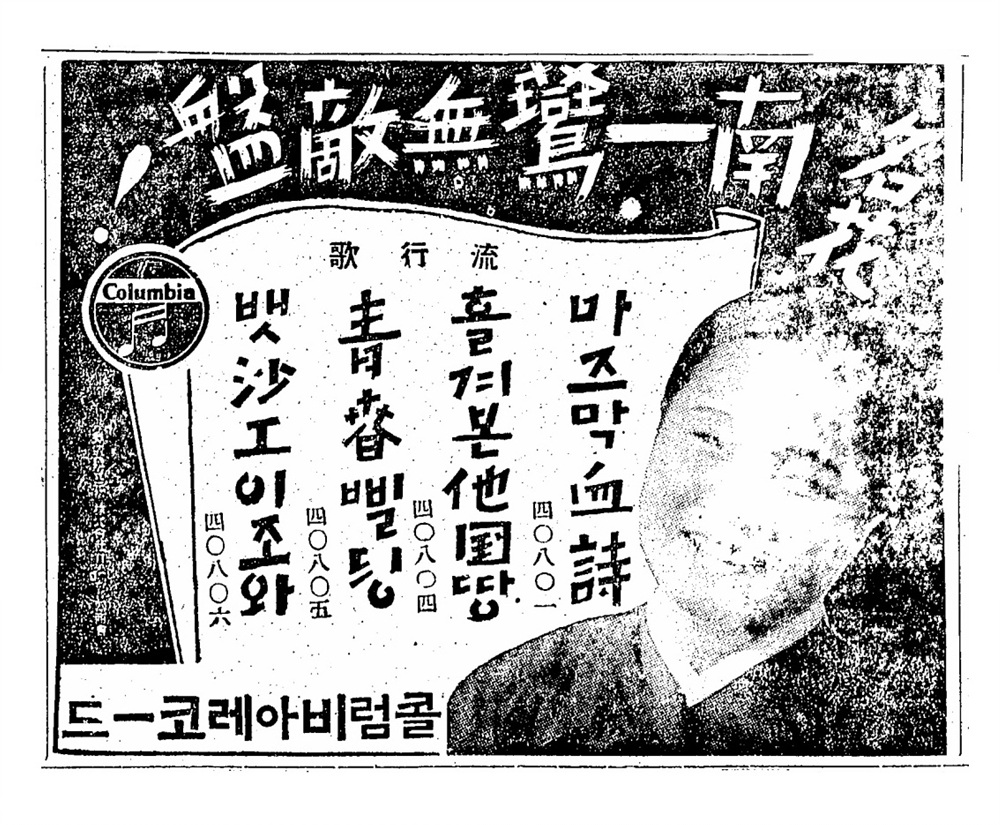 名花
南一鷰無敵盤!
流行歌
마즈막血詩
四〇八〇一
흘겨본他国땅
四〇八〇四
靑春삘띵
四〇八〇五
뱃沙工이조와
四〇八〇六
Columbia
콜럼비아레코ー드